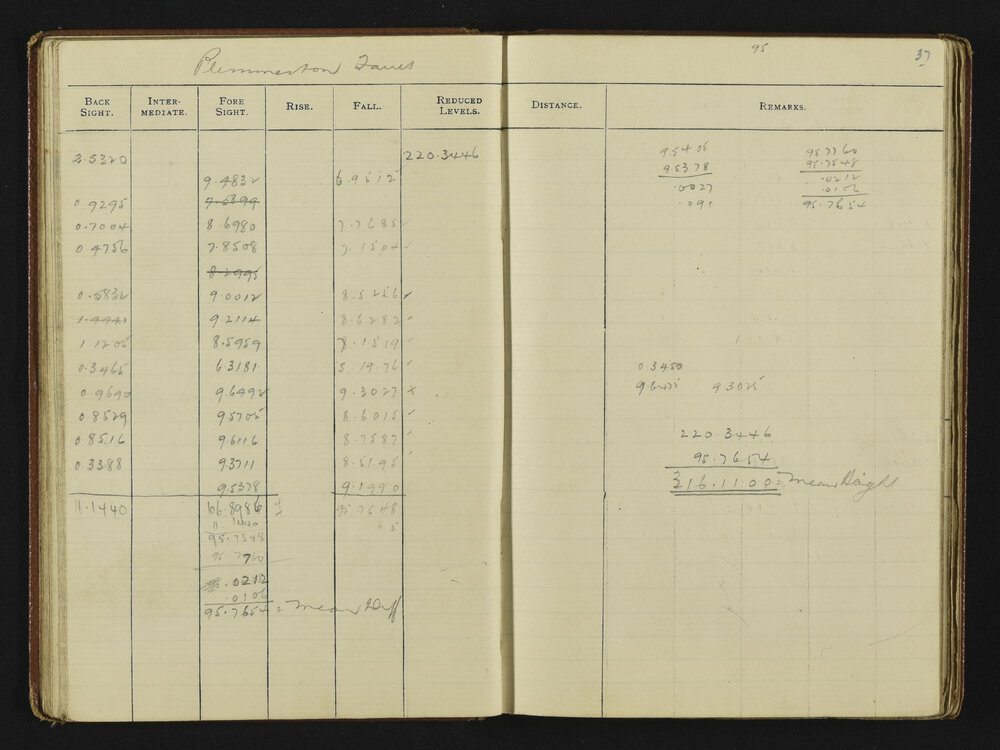 Plimmerton
95
37
BACK SIGHT. INTER-MEDIATE. FORE SIGHT. RISE. FALL. REDUCED LEVELS. DISTANCE. REMARKS.
2.5320 220.3446
9.4832 6.9512
0.9295 7.5899
0.7004 8.6980 7.7685 ✓
0.4756 7.8508 7.1504 ✓
8.2995
0.5832 9.0012 8.5256 ✓
1.4940 9.2114 8.6282 ✓
1.1205 8.5959 7.1519 ✓
0.3465 6.3181 5.1976 ✓
0.9690 9.6492 9.3027 x
0.8529 9.5705 8.6015 ✓
0.8516 9.6116 8.7587 ✓
0.3388 9.3711 8.5195 ✓
9.5378 9.1990
11.1440 106.8986 95.7548
11.1440
95.7548
95.7760
.0212
.0106
95.7654 = mean Diff
9.5405 95.7760
9.5378 95.7548
.0027 .0212
.0106
.091 95.7654
0.3450
9.6475 9.3025
220.3446
95.7654
316.1100 = mean Height